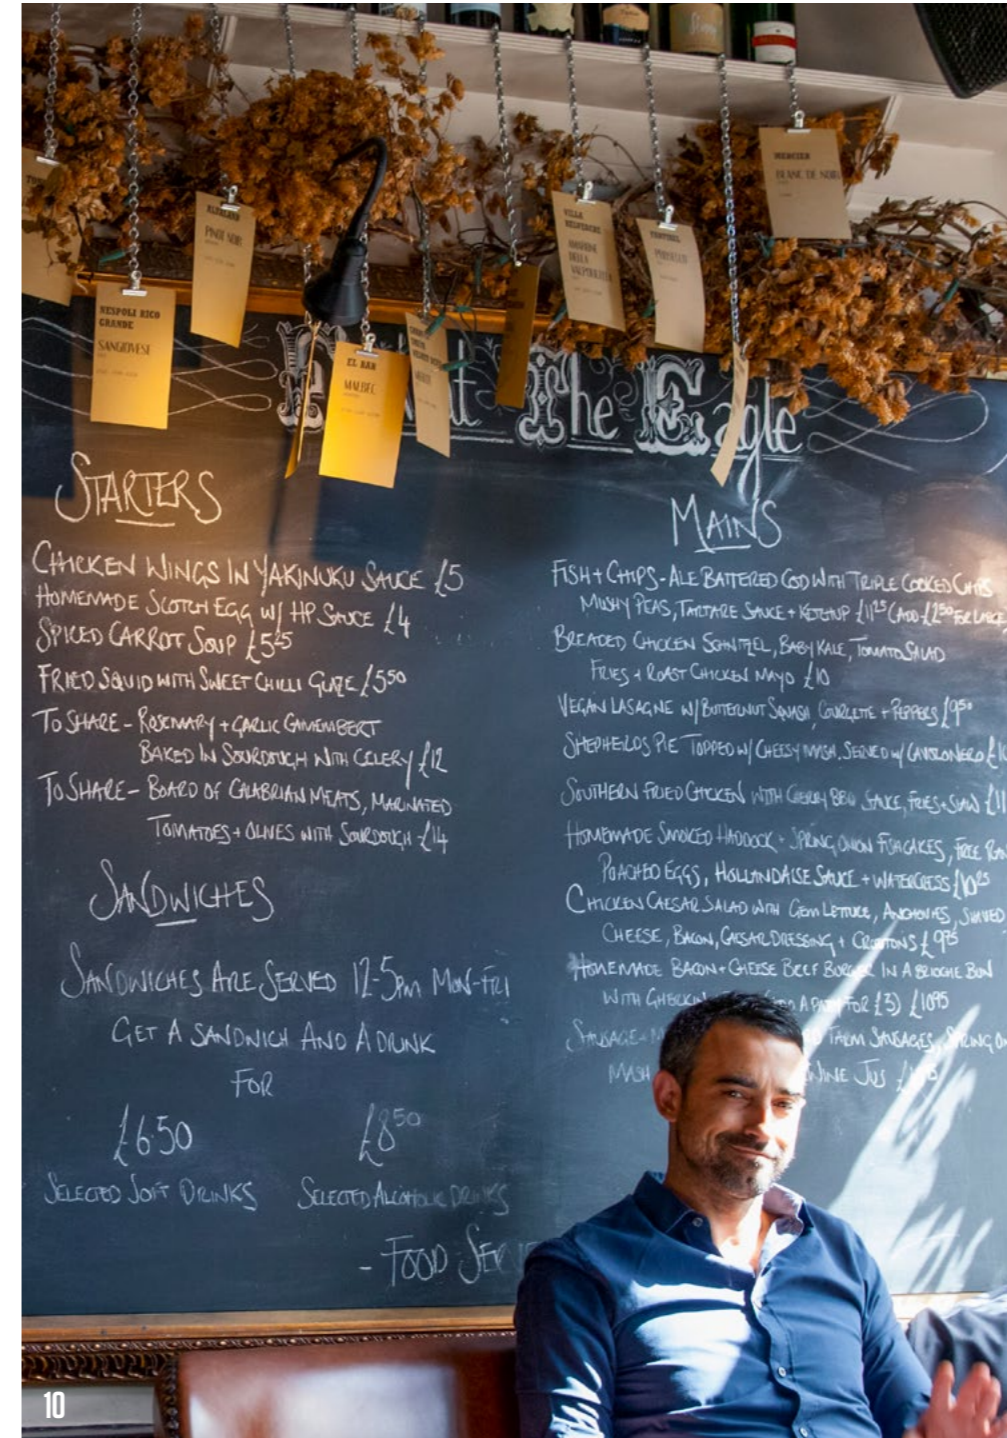 NESPOLI RICO
GRANDE
SANGIOVESE
PINOT NOIR
EL BAR
MALBEC
VILLA
BELVEDERE
AMARONE
DELLA
VALPOLICELLA
MERCIER
BLANC DE NOIR
at The Eagle
STARTERS
CHICKEN WINGS IN YAKINUKU SAUCE £5
HOMEMADE SCOTCH EGG W/ HP SAUCE £4
SPICED CARROT SOUP £5
FRIED SQUID WITH SWEET CHILLI GLAZE £5 50
TO SHARE - ROSEMARY + GARLIC CAMEMBERT
BAKED IN SOURDOUGH WITH CELERY £12
TO SHARE - BOARD OF CALABRIAN MEATS, MARINATED
TOMATOES + OLIVES WITH SOURDOUGH - £14
SANDWICHES
SANDWICHES ARE SERVED 12-5PM MON-FRI
GET A SANDWICH AND A DRINK
FOR
£6.50 £8 50
SELECTED SOFT DRINKS SELECTED ALCOHOLIC DRINKS
- FOOD SERV
MAINS
FISH + CHIPS - ALE BATTERED COD WITH TRIPLE COOKED CHIPS
MUSHY PEAS, TARTARE SAUCE + KETCHUP £11 25 (ADD £2 50 FOR LARGE
BREADED CHICKEN SCHNITZEL, BABY KALE, TOMATO SALAD
FRIES + ROAST CHICKEN MAYO £10
VEGAN LASAGNE W/ BUTTERNUT SQUASH, COURGETTE + PEPPERS £9 50
SHEPHERDS PIE TOPPED W/ CHEESY MASH. SERVED W/ CAVOLONERO
SOUTHERN FRIED CHICKEN WITH CHERRY BBQ SAUCE, FRIES + SLAW
HOMEMADE SMOKED HADDOCK + SPRING ONION FISHCAKES, FREE RAN
POACHED EGGS, HOLLANDAISE SAUCE + WATERCRESS £10 25
CHICKEN CAESAR SALAD WITH GEM LETTUCE, ANCHOVIES, SHAVED
CHEESE, BACON, CAESAR DRESSING + CROUTONS £9 75
HOMEMADE BACON + CHEESE BEEF BURGER IN A BRIOCHE BUN
WITH GHERKIN A PATTY FOR £3) £10 95
SAUSAGE + FARM SAUSAGES, SPRING ON
MASH WINE JUS
10